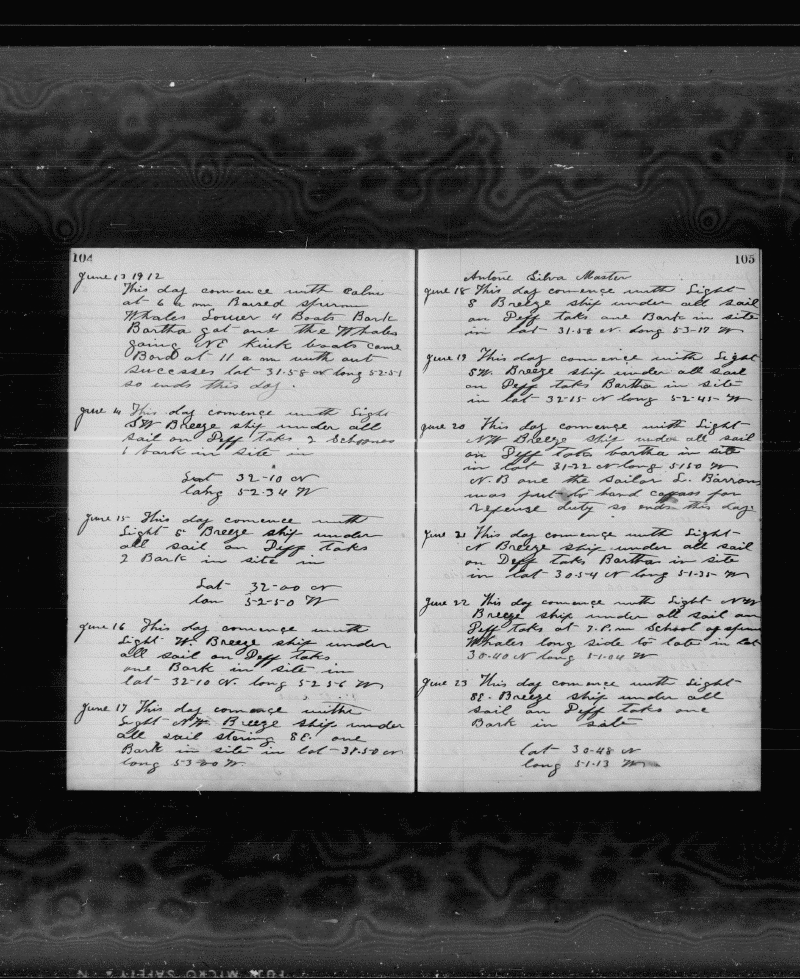 104
June 13 1912
This day comence with Calm
at 6 a m Raised sperm
Whales Lower 4 Boats Bark
Bartha got one the Whales
going NE kuick boats came
Bord at 11 a m with out
successes lat 31-58 N long 52-51
so ends this day.
June 14 This day comence with Light
SW Breeze ship under all
sail on Deff taks 2 Schoones
1 bark in site in
Lat 32-10 N
long 52-34 W
June 15 This day comence with
Light S Breeze ship under
all sail on Deff taks
2 Bark in site in
Lat 32-00 N
lon 52-50 W
June 16 This day comence with
Light W. Breeze ship under
all sail on Deff taks
one Bark in site in
lat 32-10 N. long 52-56 W
June 17 This day comence withe
Light NW Breeze ship under
all sail staring SE. one
Bark in site in lat 31-50 N
long 53-20 W
105
Antone Silva Master
June 18 This day comence with Light
S Breeze ship under all sail
on Deff taks one Bark in site
in lat 31-58 N. long 53-17 W
June 19 This day comence with Light
SW. Breeze ship under all sail
on Deff taks Bartha in site
in lat 32-15 N long 52-45 W
June 20 This day comence with Light
NW Breeze ship under all sail
on Deff taks bartha in site
in lat 31-22 N long 51-50 W
N.B one the sailor L. Barrows
was put to hand for
refuse duty so ends this day
June 21 This day comence with Light
N Breeze ship under all sail
on Deff taks Bartha in site
in lat 30-54 N long 51-35 W
June 22 This day comence with Light NW
Breeze ship under all sail on
Deff taks at 7. P.m School of sperm
Whales long side to late in lat
30-40 N long 51-04 W
June 23 This day comence with Light
SE. Breeze ship under all
sail on Deff taks one
Bark in site
lat 30-48 N
long 51-13 W